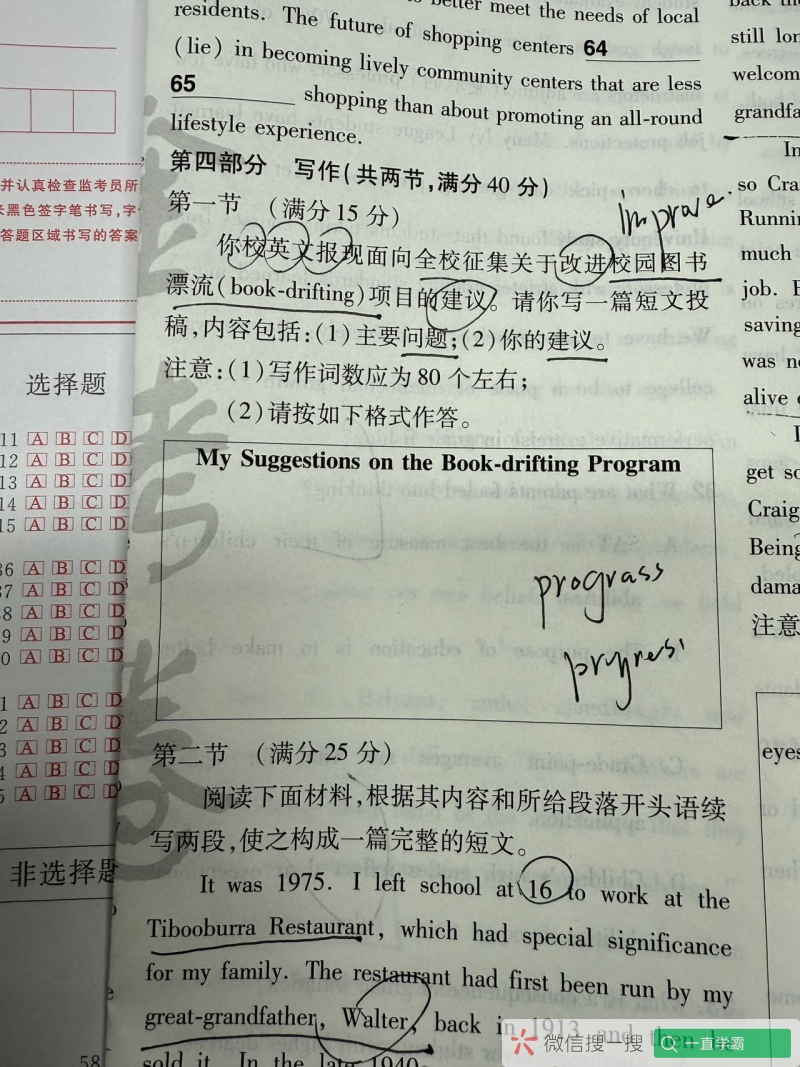 to better meet the needs of local
residents. The future of shopping centers 64
(lie) in becoming lively community centers that are less
65 shopping than about promoting an all-round
lifestyle experience.
第四部分 写作(共两节,满分 40 分)
第一节 (满分 15 分)
improve.
你校英文报现面向全校征集关于改进校园图书
漂流(book-drifting)项目的建议。请你写一篇短文投
稿,内容包括:(1)主要问题;(2)你的建议。
注意:(1)写作词数应为 80 个左右;
(2)请按如下格式作答。
My Suggestions on the Book-drifting Program
prograss
progress
第二节 (满分 25 分)
阅读下面材料,根据其内容和所给段落开头语续
写两段,使之构成一篇完整的短文。
It was 1975. I left school at 16 to work at the
Tibooburra Restaurant, which had special significance
for my family. The restaurant had first been run by my
great-grandfather, Walter, back in 1913 and then he
sold it. In the late 1940
并认真检查监考员所
米黑色签字笔书写,字
答题区域书写的答案
选择题
11 A B C D
12 A B C D
13 A B C D
14 A B C D
15 A B C D
36 A B C D
37 A B C D
38 A B C D
39 A B C D
40 A B C D
1 A B C D
2 A B C D
3 A B C D
4 A B C D
5 A B C D
非选择题
58
金考卷
still lon
welcom
grandfa
In
so Cra
Runnin
much
job.
saving
was no
alive
get so
Craig
Being
dama
注意
eyes
微信搜一搜
一直学霸